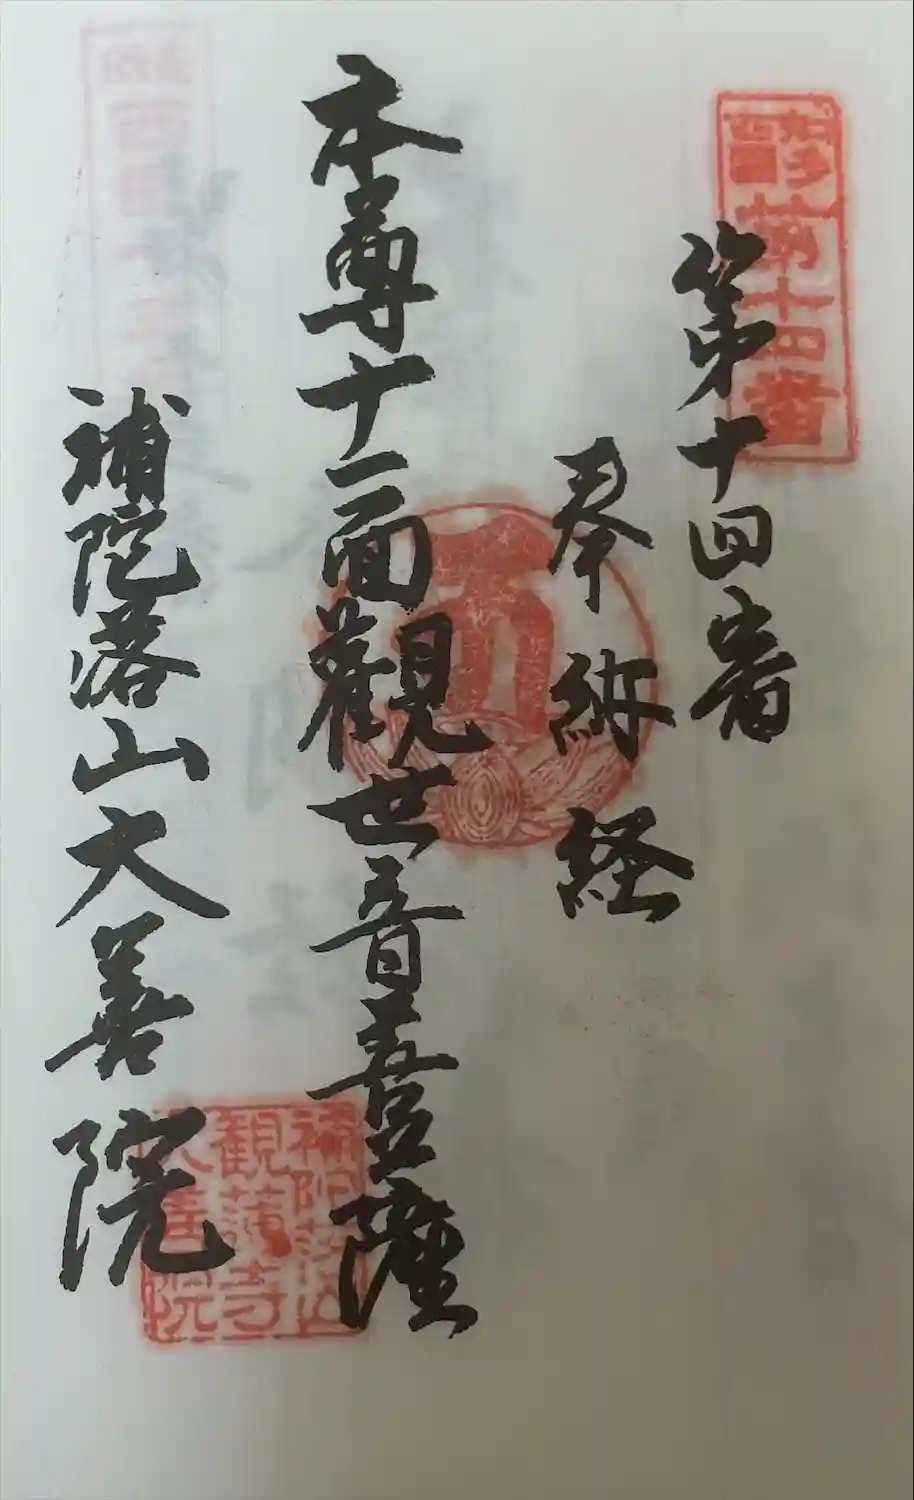 知多
西國
第十四番
第十四番
奉納経
本尊十一面觀世音菩薩
補陀落山大善院
補陀落山
觀蓮寺
大善院